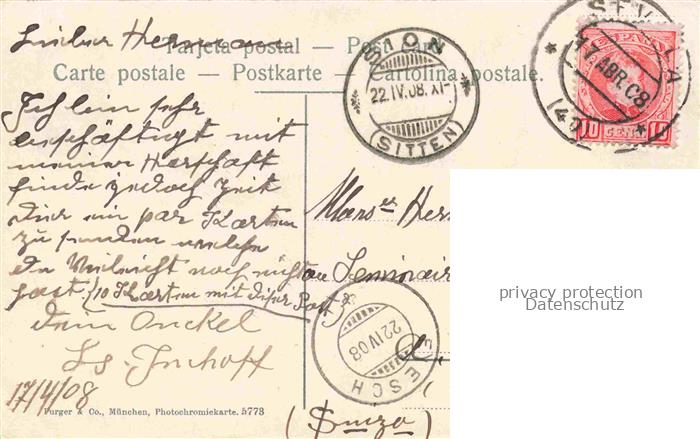 Lieber Hermann
Tarjeta postal — Post Card
Carte postale — Postkarte — Cartolina postale.
SION
22.IV.08.XI-
(SITTEN)
SEVILLA
17 ABR.08
ESPAÑA
10 CENT. 10
Ich bin sehr
beschäftigt mit
meiner Herschaft
finde jedoch Zeit
Dir ein par Karten
zu senden welche
du Vieleicht noch nicht
hast. (10 Karten mit diser Post)
dein Onckel
Ls. Imhoff
17/4/08
Purger & Co., München, Photochromiekarte. 5773
Monser Her
au Seminair
22 IV 08
ESCH
(Suiza)
privacy protection
Datenschutz